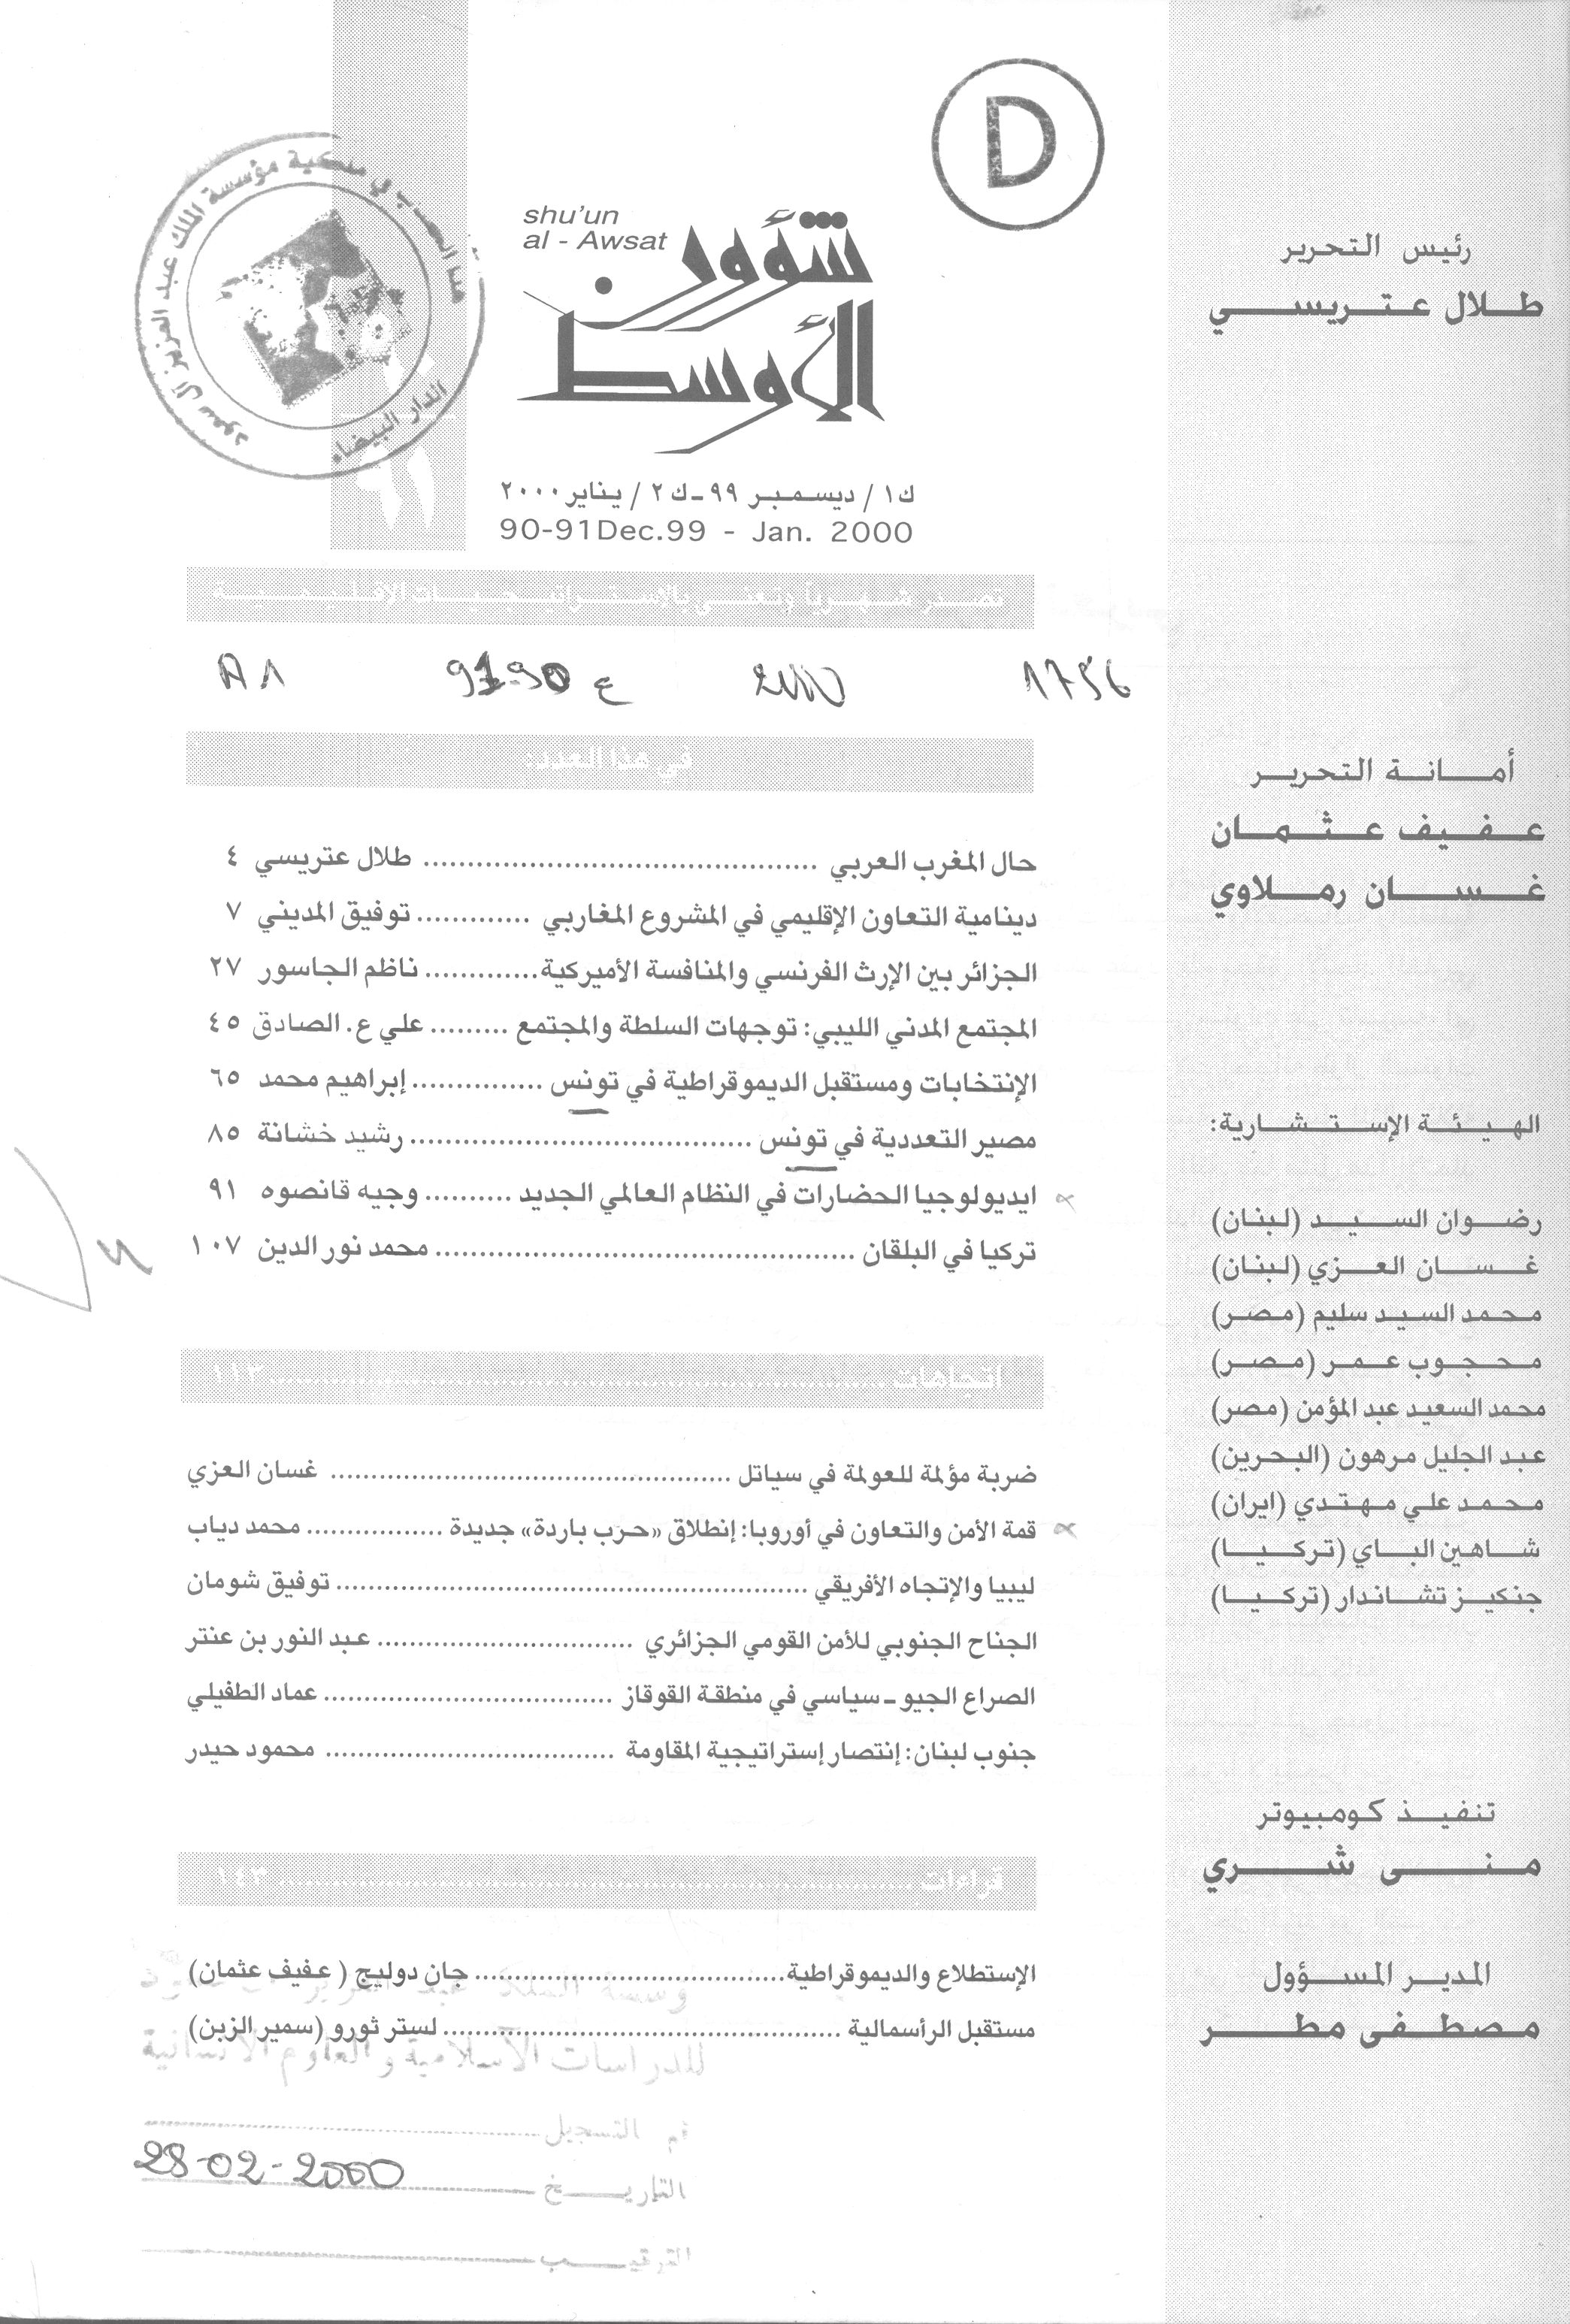 D
shu'un
al - Awsat
شؤون
الأوسط
هذا الكتاب في ملكية مؤسسة الملك عبد العزيز آل سعود
الدار البيضاء
٩١
ك١ / ديسمبر ٩٩ - ك٢ / يناير ٢٠٠٠
90-91Dec.99 - Jan. 2000
تصدر شهرياً وتعنى بالاستراتيجيات الإقليمية
2000
ع 90-91
في هذا العدد:
حال المغرب العربي ............ طلال عتريسي ٤
دينامية التعاون الإقليمي في المشروع المغاربي ............ توفيق المديني ٧
الجزائر بين الإرث الفرنسي والمنافسة الأميركية............ ناظم الجاسور ٢٧
المجتمع المدني الليبي: توجهات السلطة والمجتمع ......... علي ع. الصادق ٤٥
الإنتخابات ومستقبل الديموقراطية في تونس ............ إبراهيم محمد ٦٥
مصير التعددية في تونس ............ رشيد خشانة ٨٥
ايديولوجيا الحضارات في النظام العالمي الجديد .......... وجيه قانصوه ٩١
تركيا في البلقان ............ محمد نور الدين ١٠٧
اتجاهات ............ ١١٣
ضربة مؤلمة للعولمة في سياتل ............ غسان العزي
قمة الأمن والتعاون في أوروبا: إنطلاق «حرب باردة» جديدة ............ محمد دياب
ليبيا والإتجاه الأفريقي ............ توفيق شومان
الجناح الجنوبي للأمن القومي الجزائري ............ عبد النور بن عنتر
الصراع الجيو - سياسي في منطقة القوقاز ............ عماد الطفيلي
جنوب لبنان: إنتصار إستراتيجية المقاومة ............ محمود حيدر
قراءات ............ ١٤٣
الإستطلاع والديموقراطية............ جان دوليج ( عفيف عثمان)
مستقبل الرأسمالية ............ لستر ثورو (سمير الزبن)
للدراسات الاسلامية و العلوم الانسانية
التسجيل
التاريخ 28-02-2000
رئيس التحرير
طلال عتريسي
أمانة التحرير
عفيف عثمان
غسان رملاوي
الهيئة الإستشارية:
رضوان السيد (لبنان)
غسان العزي (لبنان)
محمد السيد سليم (مصر)
محجوب عمر (مصر)
محمد السعيد عبد المؤمن (مصر)
عبد الجليل مرهون (البحرين)
محمد علي مهتدي (ايران)
شاهين الباي (تركيا)
جنكيز تشاندار (تركيا)
تنفيذ كومبيوتر
منى شري
المدير المسؤول
مصطفى مطر